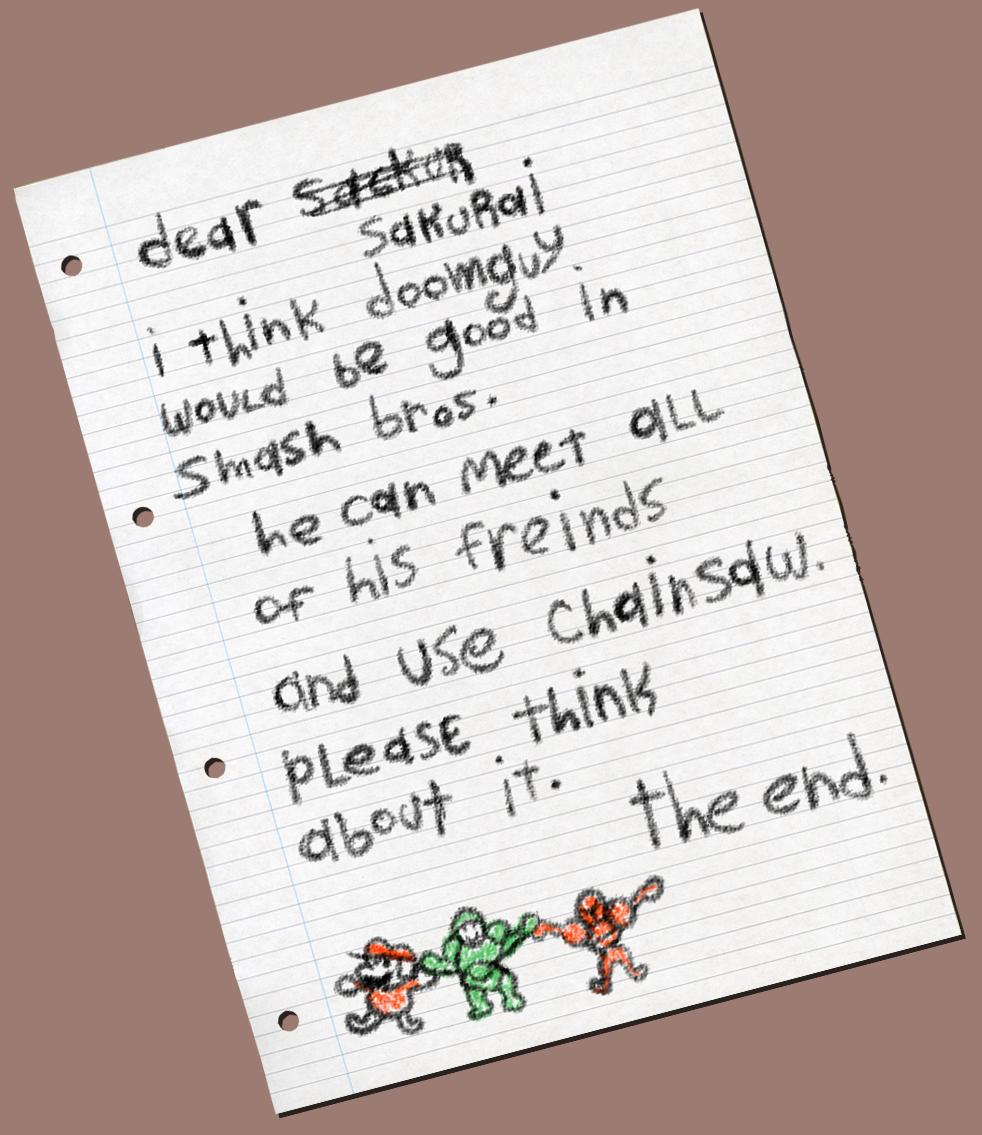 dear Sackur
SakuRai
i think doomguy
would be good in
Smash bros.
he can meet all
of his freinds
and use chainsaw.
please think
about it.
the end.